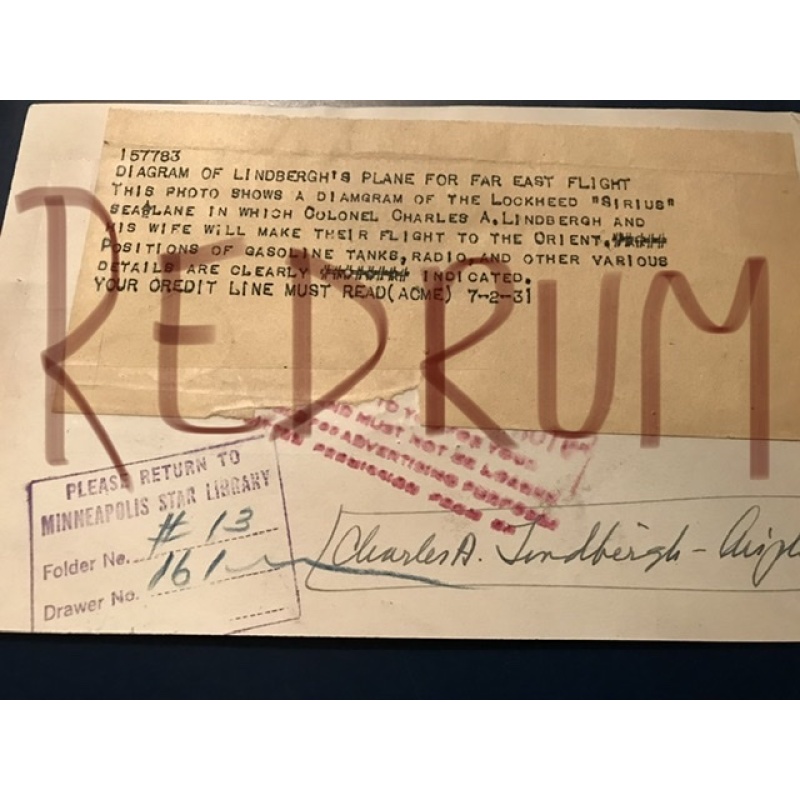 157783
DIAGRAM OF LINDBERGH'S PLANE FOR FAR EAST FLIGHT
THIS PHOTO SHOWS A DIAMGRAM OF THE LOCKHEED "SIRIUS"
SEAPLANE IN WHICH COLONEL CHARLES A. LINDBERGH AND
HIS WIFE WILL MAKE THEIR FLIGHT TO THE ORIENT.
POSITIONS OF GASOLINE TANKS, RADIO AND OTHER VARIOUS
DETAILS ARE CLEARLY INDICATED.
YOUR CREDIT LINE MUST READ (ACME) 7-2-31
REDRUM
TO YOU FOR YOUR
AND MUST NOT BE
FOR ADVERTISING PURPOSES
PERMISSION FROM
PLEASE RETURN TO
MINNEAPOLIS STAR LIBRARY
Folder No. # 13
Drawer No. 161
Charles A. Lindbergh -